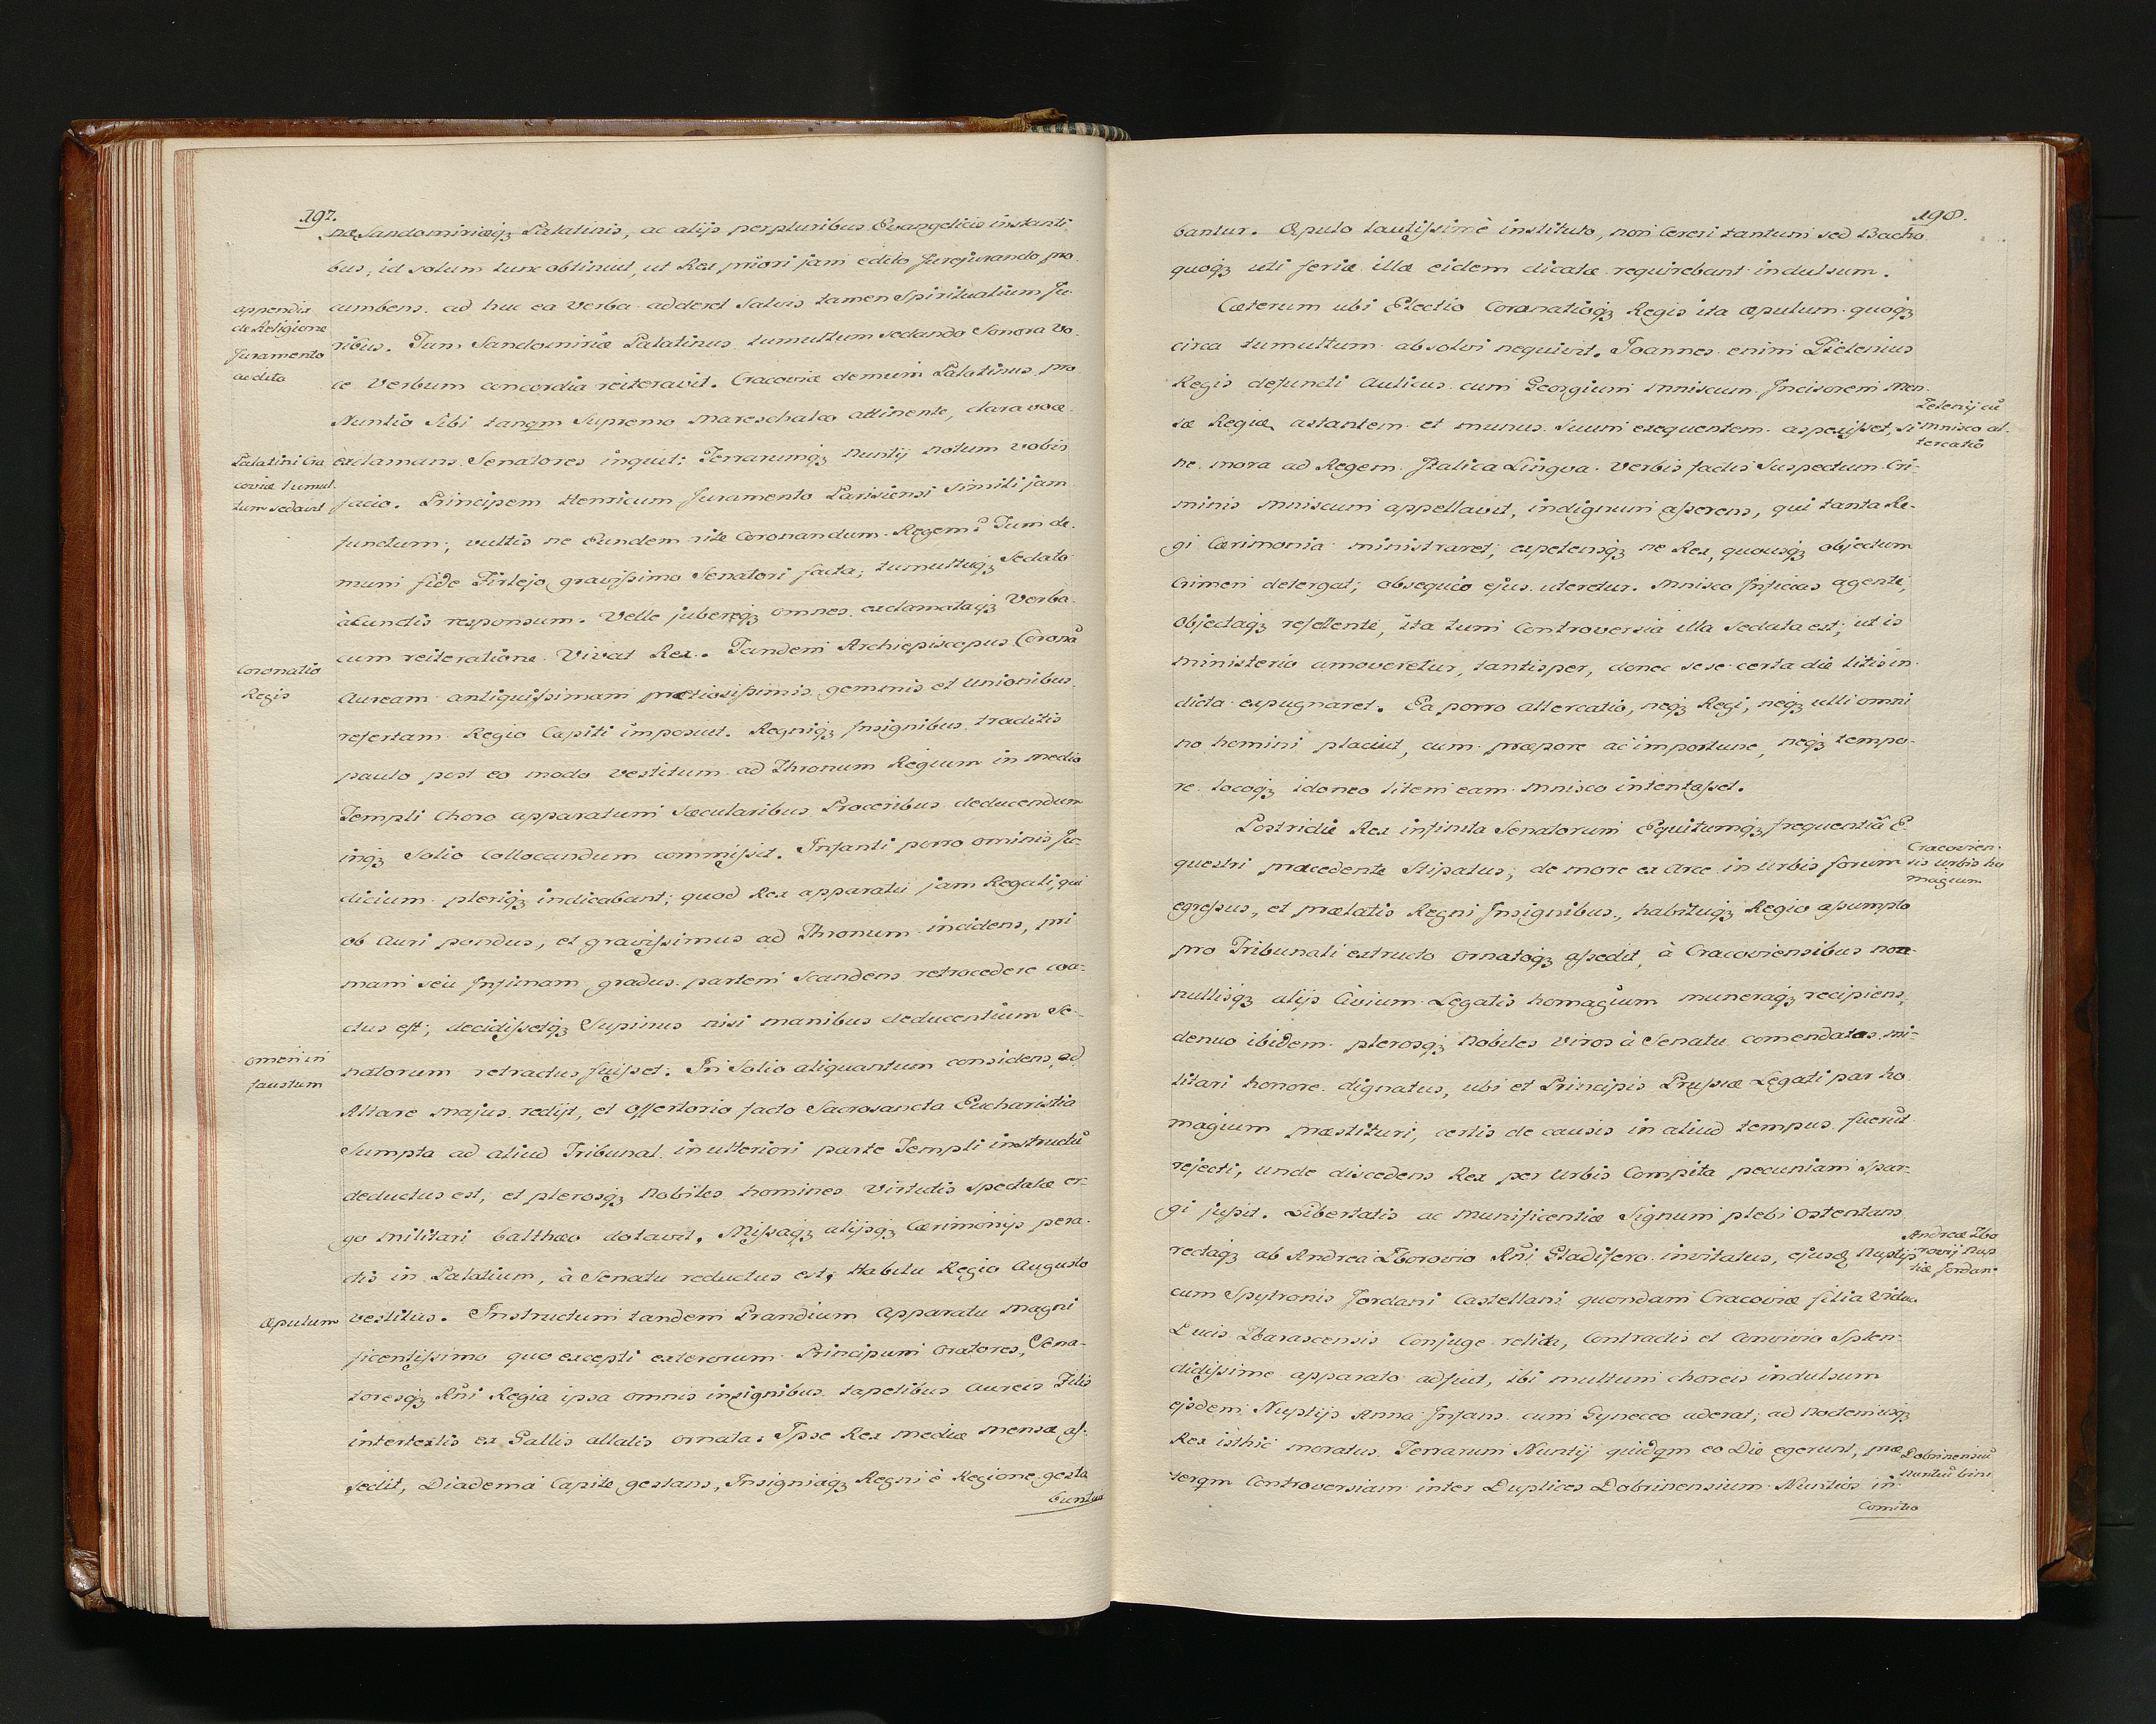 197.
næ, Sandomiriæqz Palatinis, ac alijs perpluribus Evangelicis instanti
bus, id solum tunc obtinuit, ut Rex priori jam edito Jurejurando pro
appendix
de Religione
Juramento
addito
cumbens. ad huc ea Verba adderet Salvis tamen Spiritualium Ju
ribus. Tum Sandomiriæ Palatinus tumultum sedando Sonora Vo
ce Verbum concordia reiteravit. Cracoviæ demum Palatinus pro
Nuntio Sibi tanqm Supremo Mareschalco attinente, clara voce
Palatini Cra
coviæ tumul.
tum sedavit
exclamans. Senatores inquit: Terrarumqz Nuntij notum vobis
facio. Principem Henricum Juramento Parisiensi simili jam
functum; vultis ne Eundem rite Coronandum Regem? Tum de
mum fide Firlejo gravissimo Senatori facta; tumultuqz Sedato
à cunctis responsum. Velle jubereqz omnes. exclamataqz Verba
cum reiteratione Vivat Rex. Tandem Archiepiscopus Coronã
Coronatio
Regis
Auream antiquissimam prætiosissimis gemmis et Unionibus
refertam Regio Capiti imposuit. Regniqz Insignibus traditis
paulo post eo modo vestitum ad Thronum Regium in medio
Templi choro apparatum Sæcularibus Proceribus deducendum
inqz Solio Collocandum commissit. Infanti porro ominis Ju-
dicium pleriqz indicabant; quod Rex apparatu jam Regali, qui
ob Auri pondus, et gravissimus ad Thronum incidens, pri
mam seu Infimam gradus partem Scandens retrocedere coa-
ctus est; decidissetqz Supinus nisi manibus deducentium Se-
omen in
faustum
natorum retractus fuisset. In Solio aliquantum considens, ad
Altare majus redijt, et offertorio facto Sacrosancta Eucharistia
Sumpta ad aliud Tribunal in ulteriori parte Templi instructũ
deductus est, et plerosqz Nobiles homines Virtutis spectatæ er-
go militari balthæo dotavit. Missaqz alijsqz Cærimonijs pera-
ctis in Palatium, à Senatu reductus est; Habitu Regio Augusto
Æpulum
vestitus. Instructum tandem Prandium Apparatu magni
ficentissimo quo excepti exterorum Principum Oratores, Sena-
toresqz Rñi Regia ipsa omnis insignibus tapetibus Aureis Filis
intertextis ex Gallis allatis ornata. Ipse Rex mediæ mensæ as-
sedit, Diadema Capite gestans, Insigniaqz Regni è Regione gesta
buntur
198.
bantur. Æpulo lautissimè instituto, non Cereri tantum sed Bacho
quoqz uti feriæ illæ eidem dicatæ requirebant indulsum.
Cæterum ubi Electio Coronatioqz Regis ita æpulum quoqz
circa tumultum absolvi nequivit. Joannes enim Tielenius
Regis defuncti Aulicus cum Georgium Mniscum Incisorem Men
Zelenij cũ
Mnisco al.
tercatio
sæ Regiæ astantem et munus Suum exequentem aspexisset, si
ne mora ad Regem Italica Lingva Verbis factis Suspectum Cri-
minis Mniscum appellavit, indignum asserens, qui tanta Re-
gi Cærimonia ministraret; expetensqz ne Rex, quousqz objectum
Crimen detergat; obsequio ejus uteretur. Mnisco Inficias agente,
Objectaqz refellente, ita tum Controversia illa Sedata est; ut is
ministerio amoveretur, tantisper, donec sese certa die litis in
dicta expugnaret. Ea porro altercatio, neqz Regi, neqz ulli omni
no homini placuit, cum præpore ac importune, neqz tempo-
re locoqz idoneo litem eam Mnisco intentasset.
Postridie Rex infinita Senatorum Equitumqz frequentiâ E-
Cracovien
sis Urbis ho
magium
questri præcedente Stipatus, de more ex Arce in Urbis forum
egressus, et prælatis Regni Insignibus, habituqz Regio asumpto
pro Tribunali extructo ornatoqz assedit, à Cracoviensibus non-
nullisqz alijs Civium Legatis homagium muneraqz recipiens
denuo ibidem plerosqz Nobiles Viros à Senatu comendatos mi-
litari honore dignatus, ubi et Principis Prussiæ Legati par ho
magium præstituri, certis de causis in aliud tempus fuerũt
rejecti, unde discedens Rex per Urbis Compita pecuniam spar-
gi jussit. Libertatis ac Munificentiæ Signum plebi ostentans
Andreæ Zbo
rovij Nup
tiæ Jordan.
rectaqz ab Andrea Zborovio Rñi Gladifero invitatus, ejusq Nuptijs
cum Spytronis Jordani Castellani quondam Cracoviæ filia Vidua
Ducis Zbarascensis Conjuge relicta, Contractis et Convivio Splen-
didissime apparato adfuit, ibi multum choreis indulsum
ejsdem Nuptijs Anna Infans cum Gyneceo aderat; ad Noctemusqz
Rex isthic moratus. Terrarum Nuntij quidqm eo Die egerunt, præ
Dobrinensiũ
Nuntiũ bini
terqm Controversiam inter Duplices Dobrinensium Nuntios in
Comitio